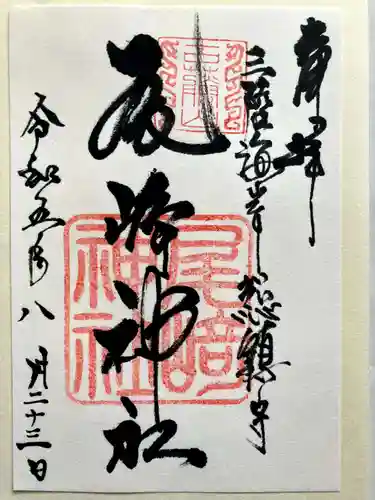 奉拝
三陸海岸総鎮守
尾崎神社
令和五年八月二十三日
尾崎神社